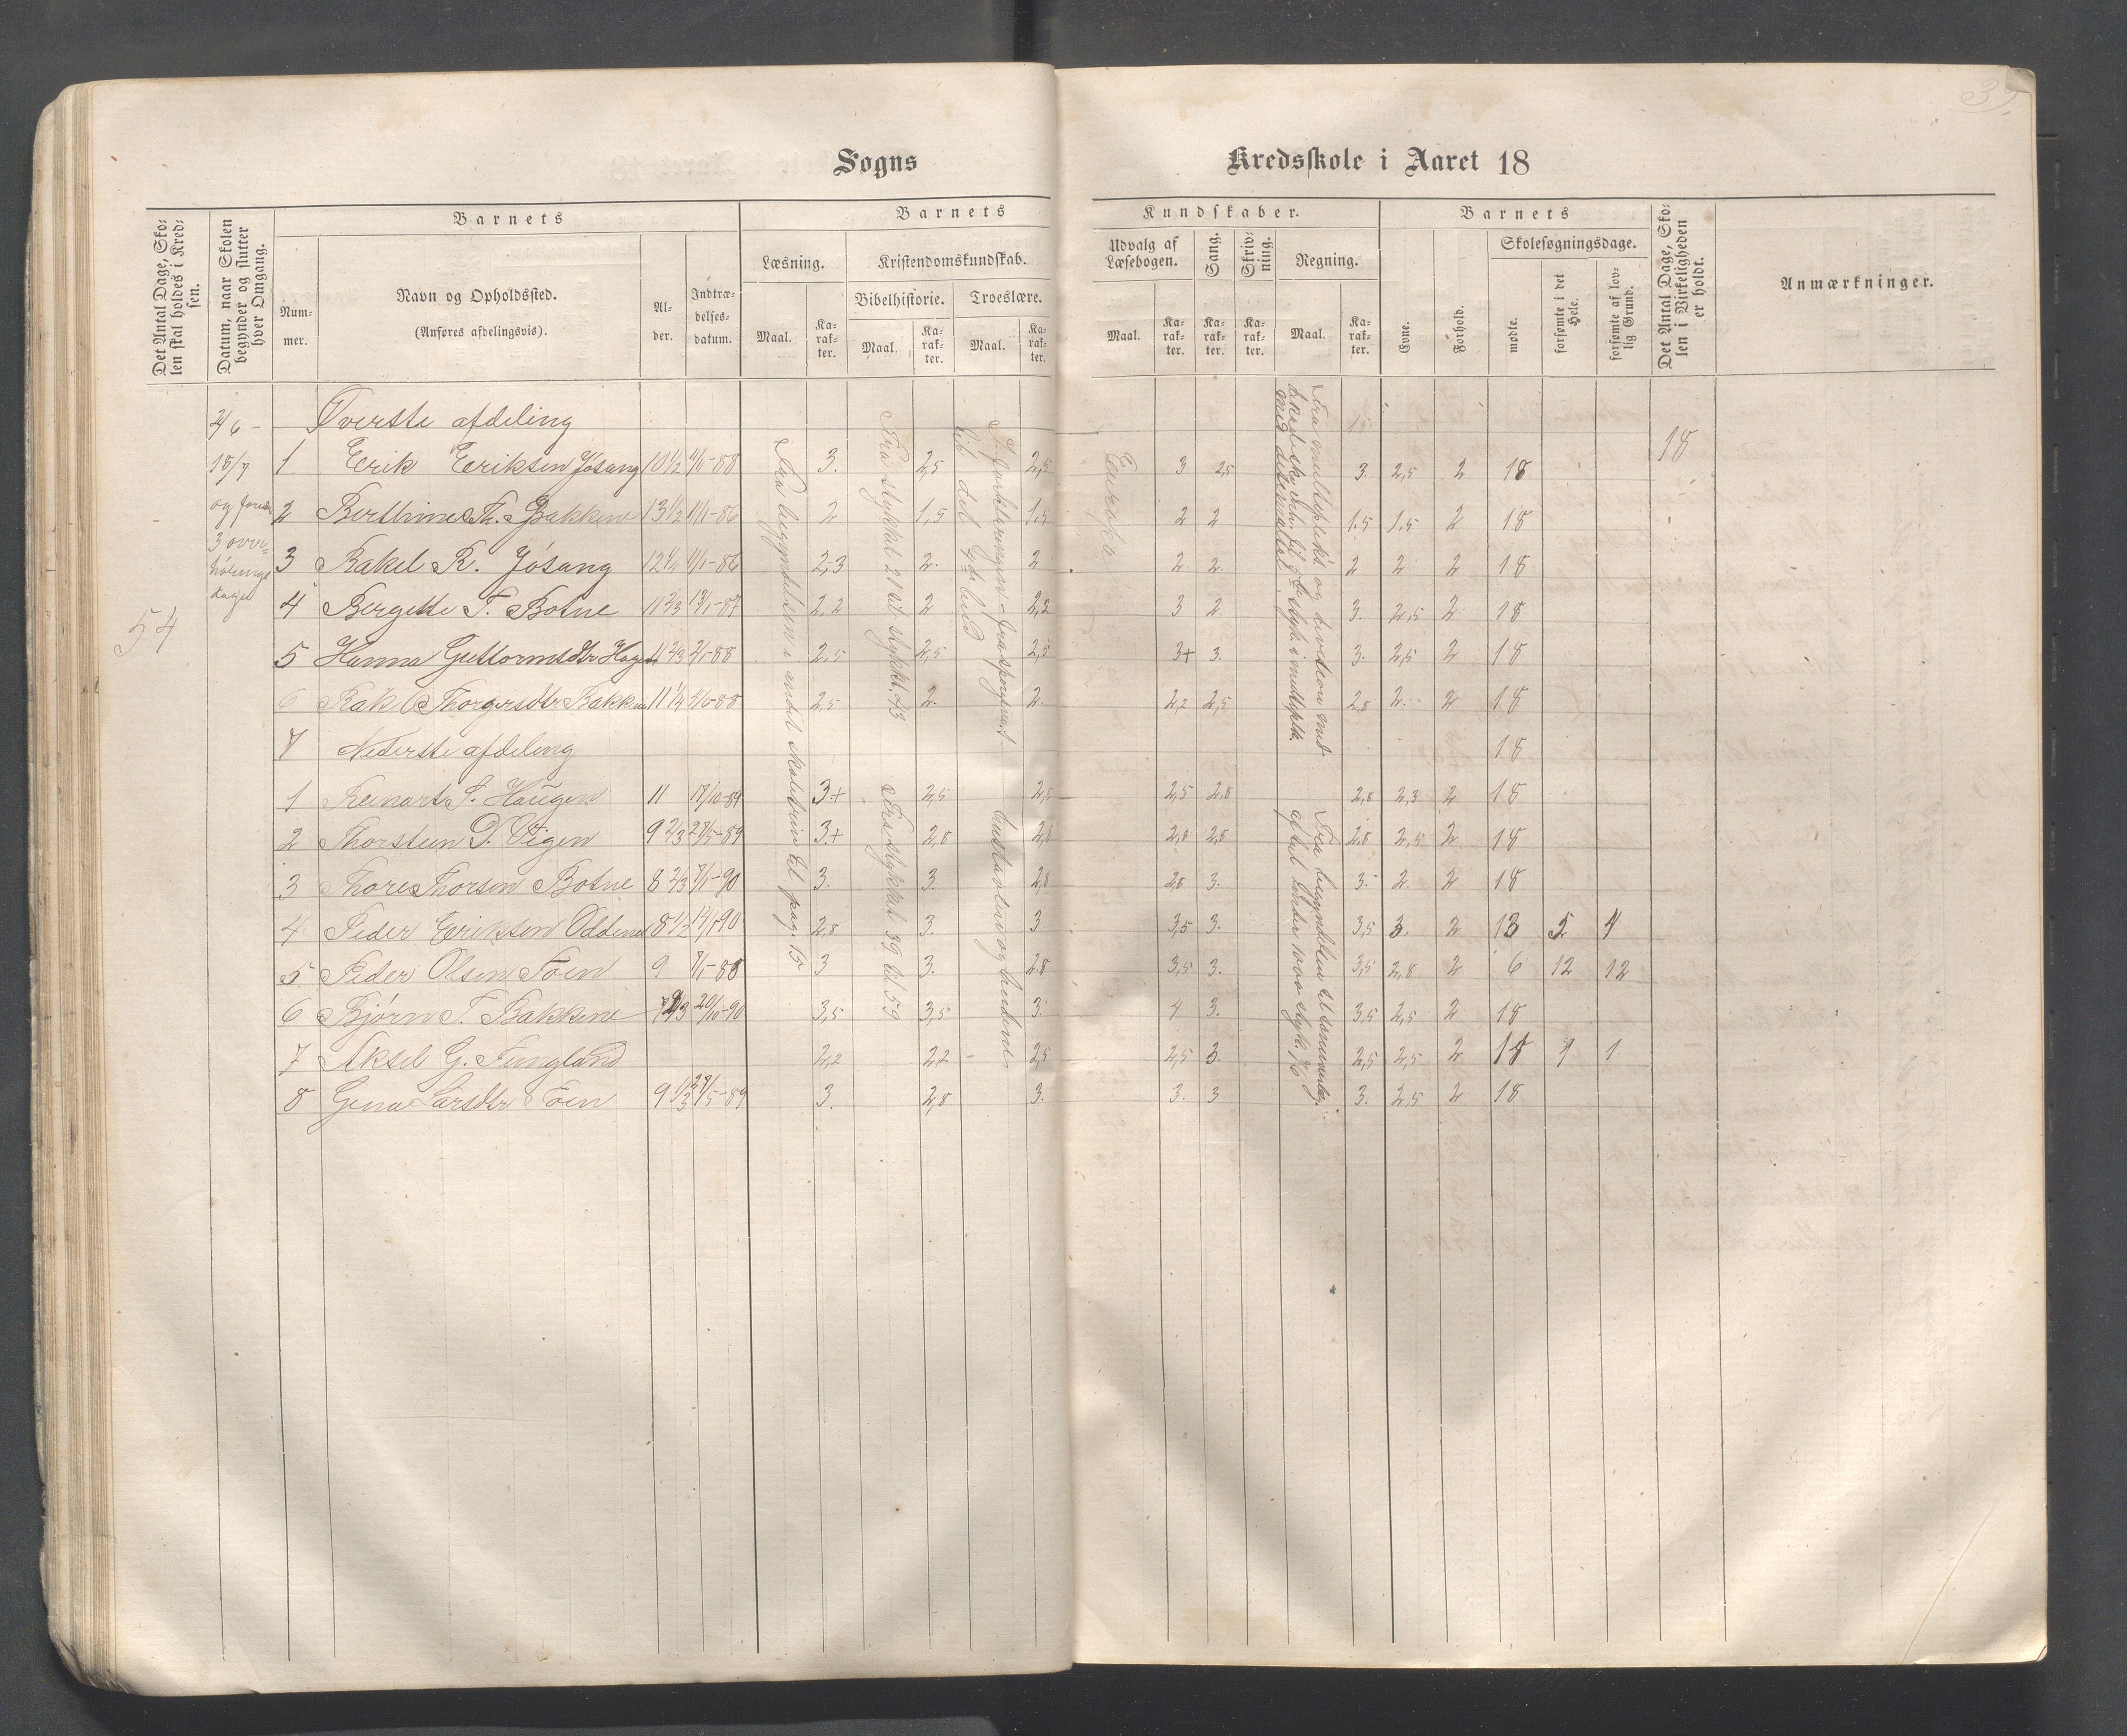 Sogns
Kredsskole i Aaret 18
Det Antal Dage, Skolen skal holdes i Kredsen.
Datum, naar Skolen begynder og slutter hver Omgang.
Barnets
Nummer.
Navn og Opholdssted.
(Anføres afdelingsvis).
Alder.
Indtrædelsesdatum.
Barnets
Kundskaber.
Læsning.
Kristendomskundskab.
Bibelhistorie.
Troeslære.
Maal.
Karakter.
Maal.
Karakter.
Maal.
Karakter.
Udvalg af Læsebogen.
Sang.
Skrivning.
Regning.
Maal.
Karakter.
Karakter.
Karakter.
Maal.
Karakter.
Barnets
Evne.
Forhold.
Skolesøgningsdage.
mødte.
forsømte i det Hele.
forsømte af lovlig Grund.
Det Antal Dage, Skolen i Virkeligheden er holdt.
Anmærkninger.
54
Øverste afdeling
18
1 Erik Eriksen Jósang 10 1/2 3. 2,5 2,5 3 2,5 3. 2,5 2 18
2 Berthine Th. Bakkene 13 1/2 11/1-86 2 1,5 1,5 2 2 1.5 1,5 2 18
3 Rakel R. Jósang 12 1/4 11/1-86 2,3 2. 2 2 2. 2 2 2 18
4 Bergette T. Botne 11 2/3 13/1-87 2,2 2 2,2 3 2 3. 2,5 2 18
5 Hanna Guttormsdtr Hagen 11 2/3 2/1-88 2,5 2,5 2,5 3+ 3. 3. 2,5 2 18
6 Rakel Thorgersdtr Bakken 11 1/4 2,5 2. 2. 2,2 2,5 2,8 2. 2 18
7 Nederste afdeling 18
1 Reinart S. Haugen 11 17/10-89 3+ 2,5 2,5 2,5 2,8 2,8 2,3 2 18
2 Thorstein D. Vigen 9 2/3 27/5-89 3+ 2,8 2,8 2,8 2,8 2,8 2,5 2 18
3 Thore Thorsen Botne 8 2/3 7/1-90 3. 3. 2,8 2,8 3. 3. 2. 2 18
4 Peder Eriksen Oddenes 8 1/2 14/1-90 2,8 3. 3 3,5 3. 3,5 3. 2 13 5 4
5 Peder Olsen Toen 9 7/1-88 3 3. 2.8 3,5 3. 3,5 2,8 2 6 12 12
6 Bjórn T. Bakkene 20/10-90 3,5 3,5 3 4 3. 3,5 2,5 2 18
7 Aksel G. Fungland 2,2 2,2 2,5 2,5 3. 2,5 2,5 2 18 1 1
8 Gina Larsdtr Toen 9 1/3 27/5-89 3. 2,8 3. 3. 3 3. 2,5 2 18
Fra begyndelsen i andet skoletrin til pag. 15
Fra stykket 21 til stykket 43
Fra stykket 39 til 59
Europa